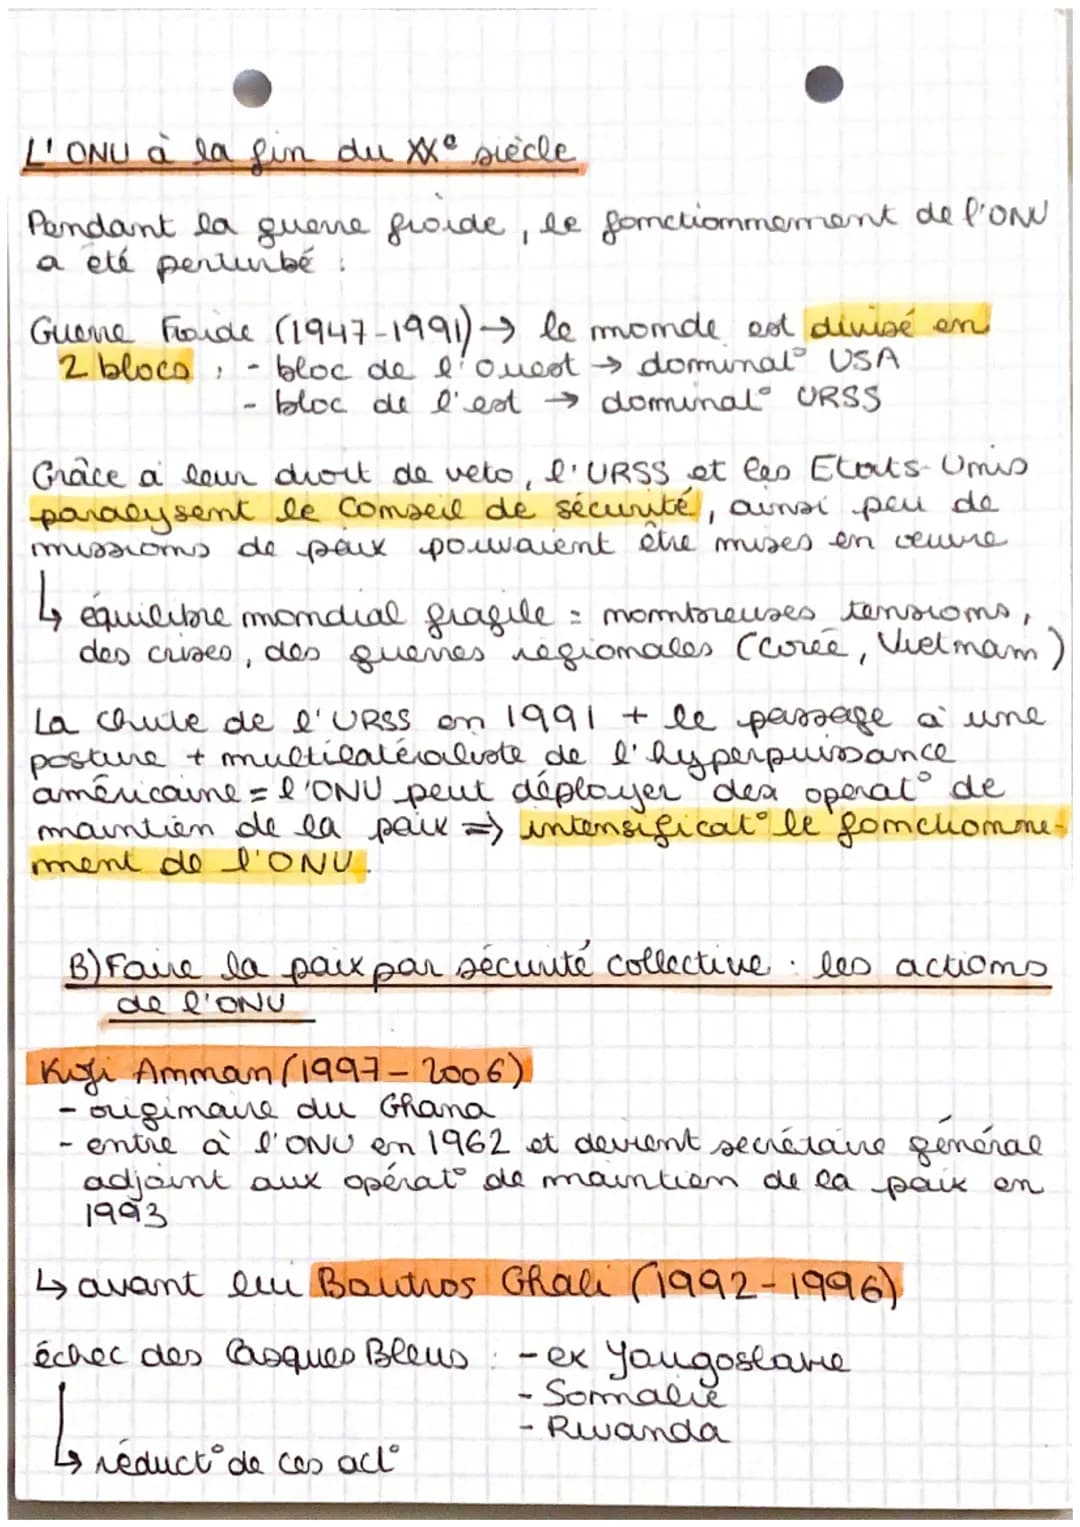 L'ONU à la fin du XXe siècle
Pendant la guerre froide, le fonctionnement de l'ONU
a été perturbé :
Guerre Froide (1947-1991) → le monde est divisé en
2 blocs : - bloc de l'Ouest → dominat° USA
- bloc de l'est → dominat° URSS
Grâce à leur droit de veto, l'URSS et les Etats-Unis
paralysent le Conseil de sécurité, ainsi peu de
missions de paix pouvaient être mises en œuvre
↳ équilibre mondial fragile = nombreuses tensions,
des crises, des guerres régionales (Corée, Vietnam)
La chute de l'URSS en 1991 + le passage à une
posture + multilatéraliste de l'hyperpuissance
américaine = l'ONU peut déployer des operat° de
maintien de la paix => intensificat° le fonctionne-
ment de l'ONU.
B) Faire la paix par sécurité collective : les actions
de l'ONU
Kofi Annan (1997-2006)
- originaire du Ghana
- entre à l'ONU en 1962 et devient secrétaire général
adjoint aux opérat° de maintien de la paix en
1993
↳ avant lui Boutros Ghali (1992-1996)
échec des Casques Bleus : - ex Yougoslavie
- Somalie
- Rwanda
↳ réduct° de ces act°